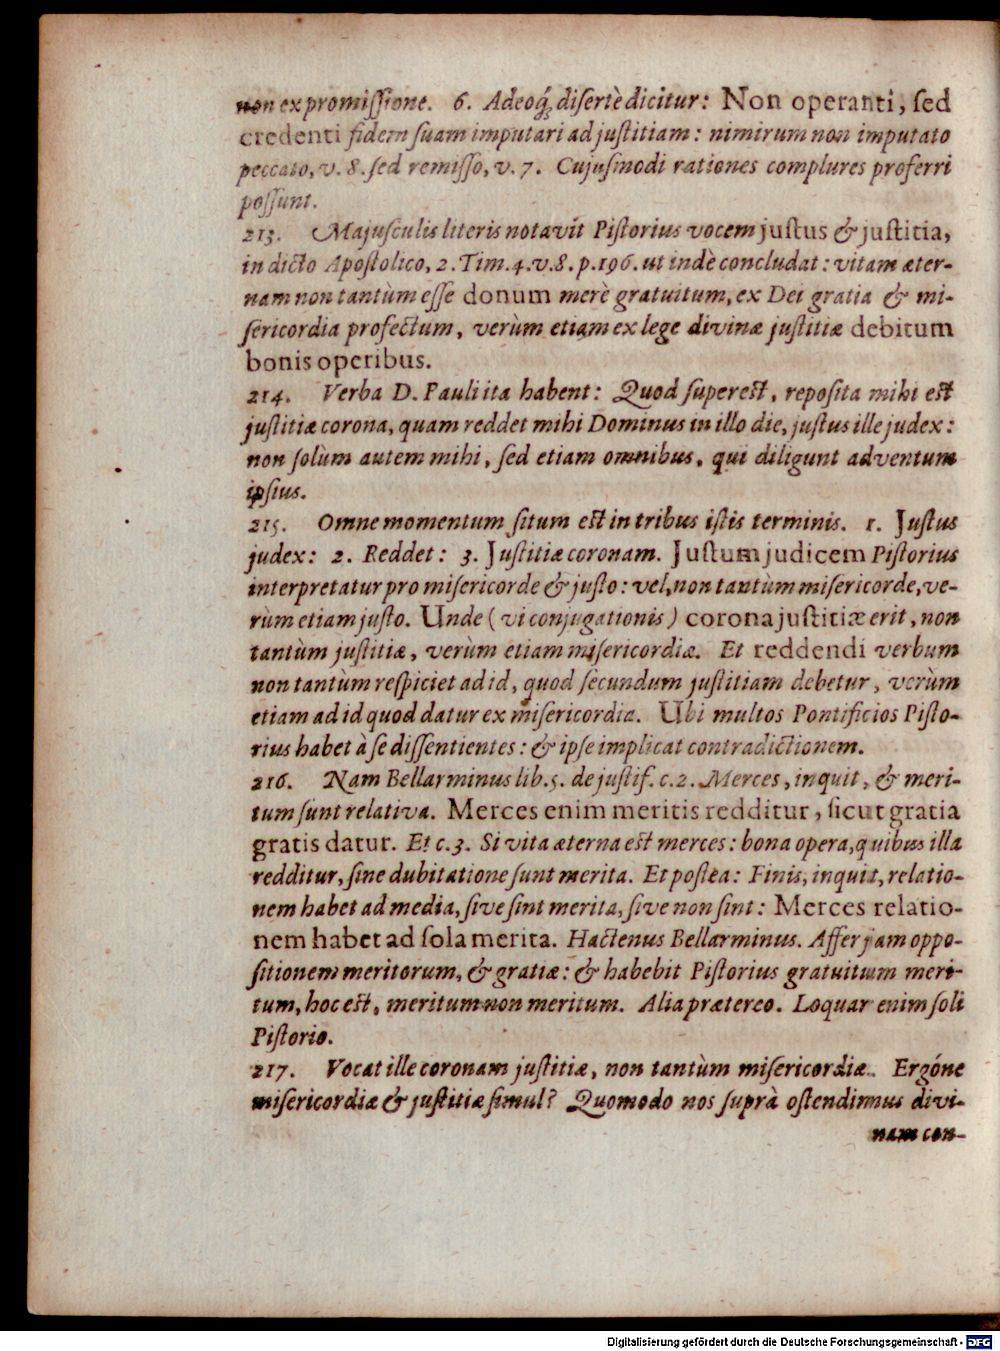 non ex promiſſione. 6. Adeoq́; diſertè dicitur: Non operanti, ſed
credenti fidem ſuam imputari ad juſtitiam: nimirum non imputato
peccato, v. 8. ſed remiſſo, v. 7. Cujuſmodi rationes complures proferri
poſſunt.
213. Majuſculis literis notavit Piſtorius vocem juſtus & juſtitia,
in dicto Apoſtolico, 2. Tim. 4. v. 8. p. 196. ut indè concludat: vitam æter-
nam non tantùm eſſe donum merè gratuitum, ex Dei gratia & mi-
ſericordia profectum, verùm etiam ex lege divinæ juſtitiæ debitum
bonis operibus.
214. Verba D. Pauli ita habent: Quod ſupereſt, repoſita mihi eſt
juſtitiæ corona, quam reddet mihi Dominus in illo die, juſtus ille judex:
non ſolùm autem mihi, ſed etiam omnibus, qui diligunt adventum
ipſius.
215. Omne momentum ſitum eſt in tribus iſtis terminis. 1. Juſtus
judex: 2. Reddet: 3. Juſtitiæ coronam. Juſtum judicem Piſtorius
interpretatur pro miſericorde & juſto: vel, non tantùm miſericorde, ve-
rùm etiam juſto. Unde (vi conjugationis) corona juſtitiæ erit, non
tantùm juſtitiæ, verùm etiam miſericordiæ. Et reddendi verbum
non tantùm reſpiciet ad id, quod ſecundum juſtitiam debetur, verùm
etiam ad id quod datur ex miſericordia. Ubi multos Pontificios Piſto-
rius habet à ſe diſſentientes: & ipſe implicat contradictionem.
216. Nam Bellarminus lib. 5. de juſtif. c. 2. Merces, inquit, & meri-
tum ſunt relativa. Merces enim meritis redditur, ſicut gratia
gratis datur. Et c. 3. Si vita æterna eſt merces: bona opera, quibus illa
redditur, ſine dubitatione ſunt merita. Et poſtea: Finis, inquit, relatio-
nem habet ad media, ſive ſint merita, ſive non ſint: Merces relatio-
nem habet ad ſola merita. Hactenus Bellarminus. Affer jam oppo-
ſitionem meritorum, & gratiæ: & habebit Piſtorius gratuitum meri-
tum, hoc eſt, meritum non meritum. Alia prætereo. Loquar enim ſoli
Piſtorio.
217. Vocat ille coronam juſtitiæ, non tantùm miſericordiæ. Ergóne
miſericordiæ & juſtitiæ ſimul? Quomodo nos ſuprà oſtendimus divi-
nam con-
Digitalisierung gefördert durch die Deutsche Forschungsgemeinschaft - DFG